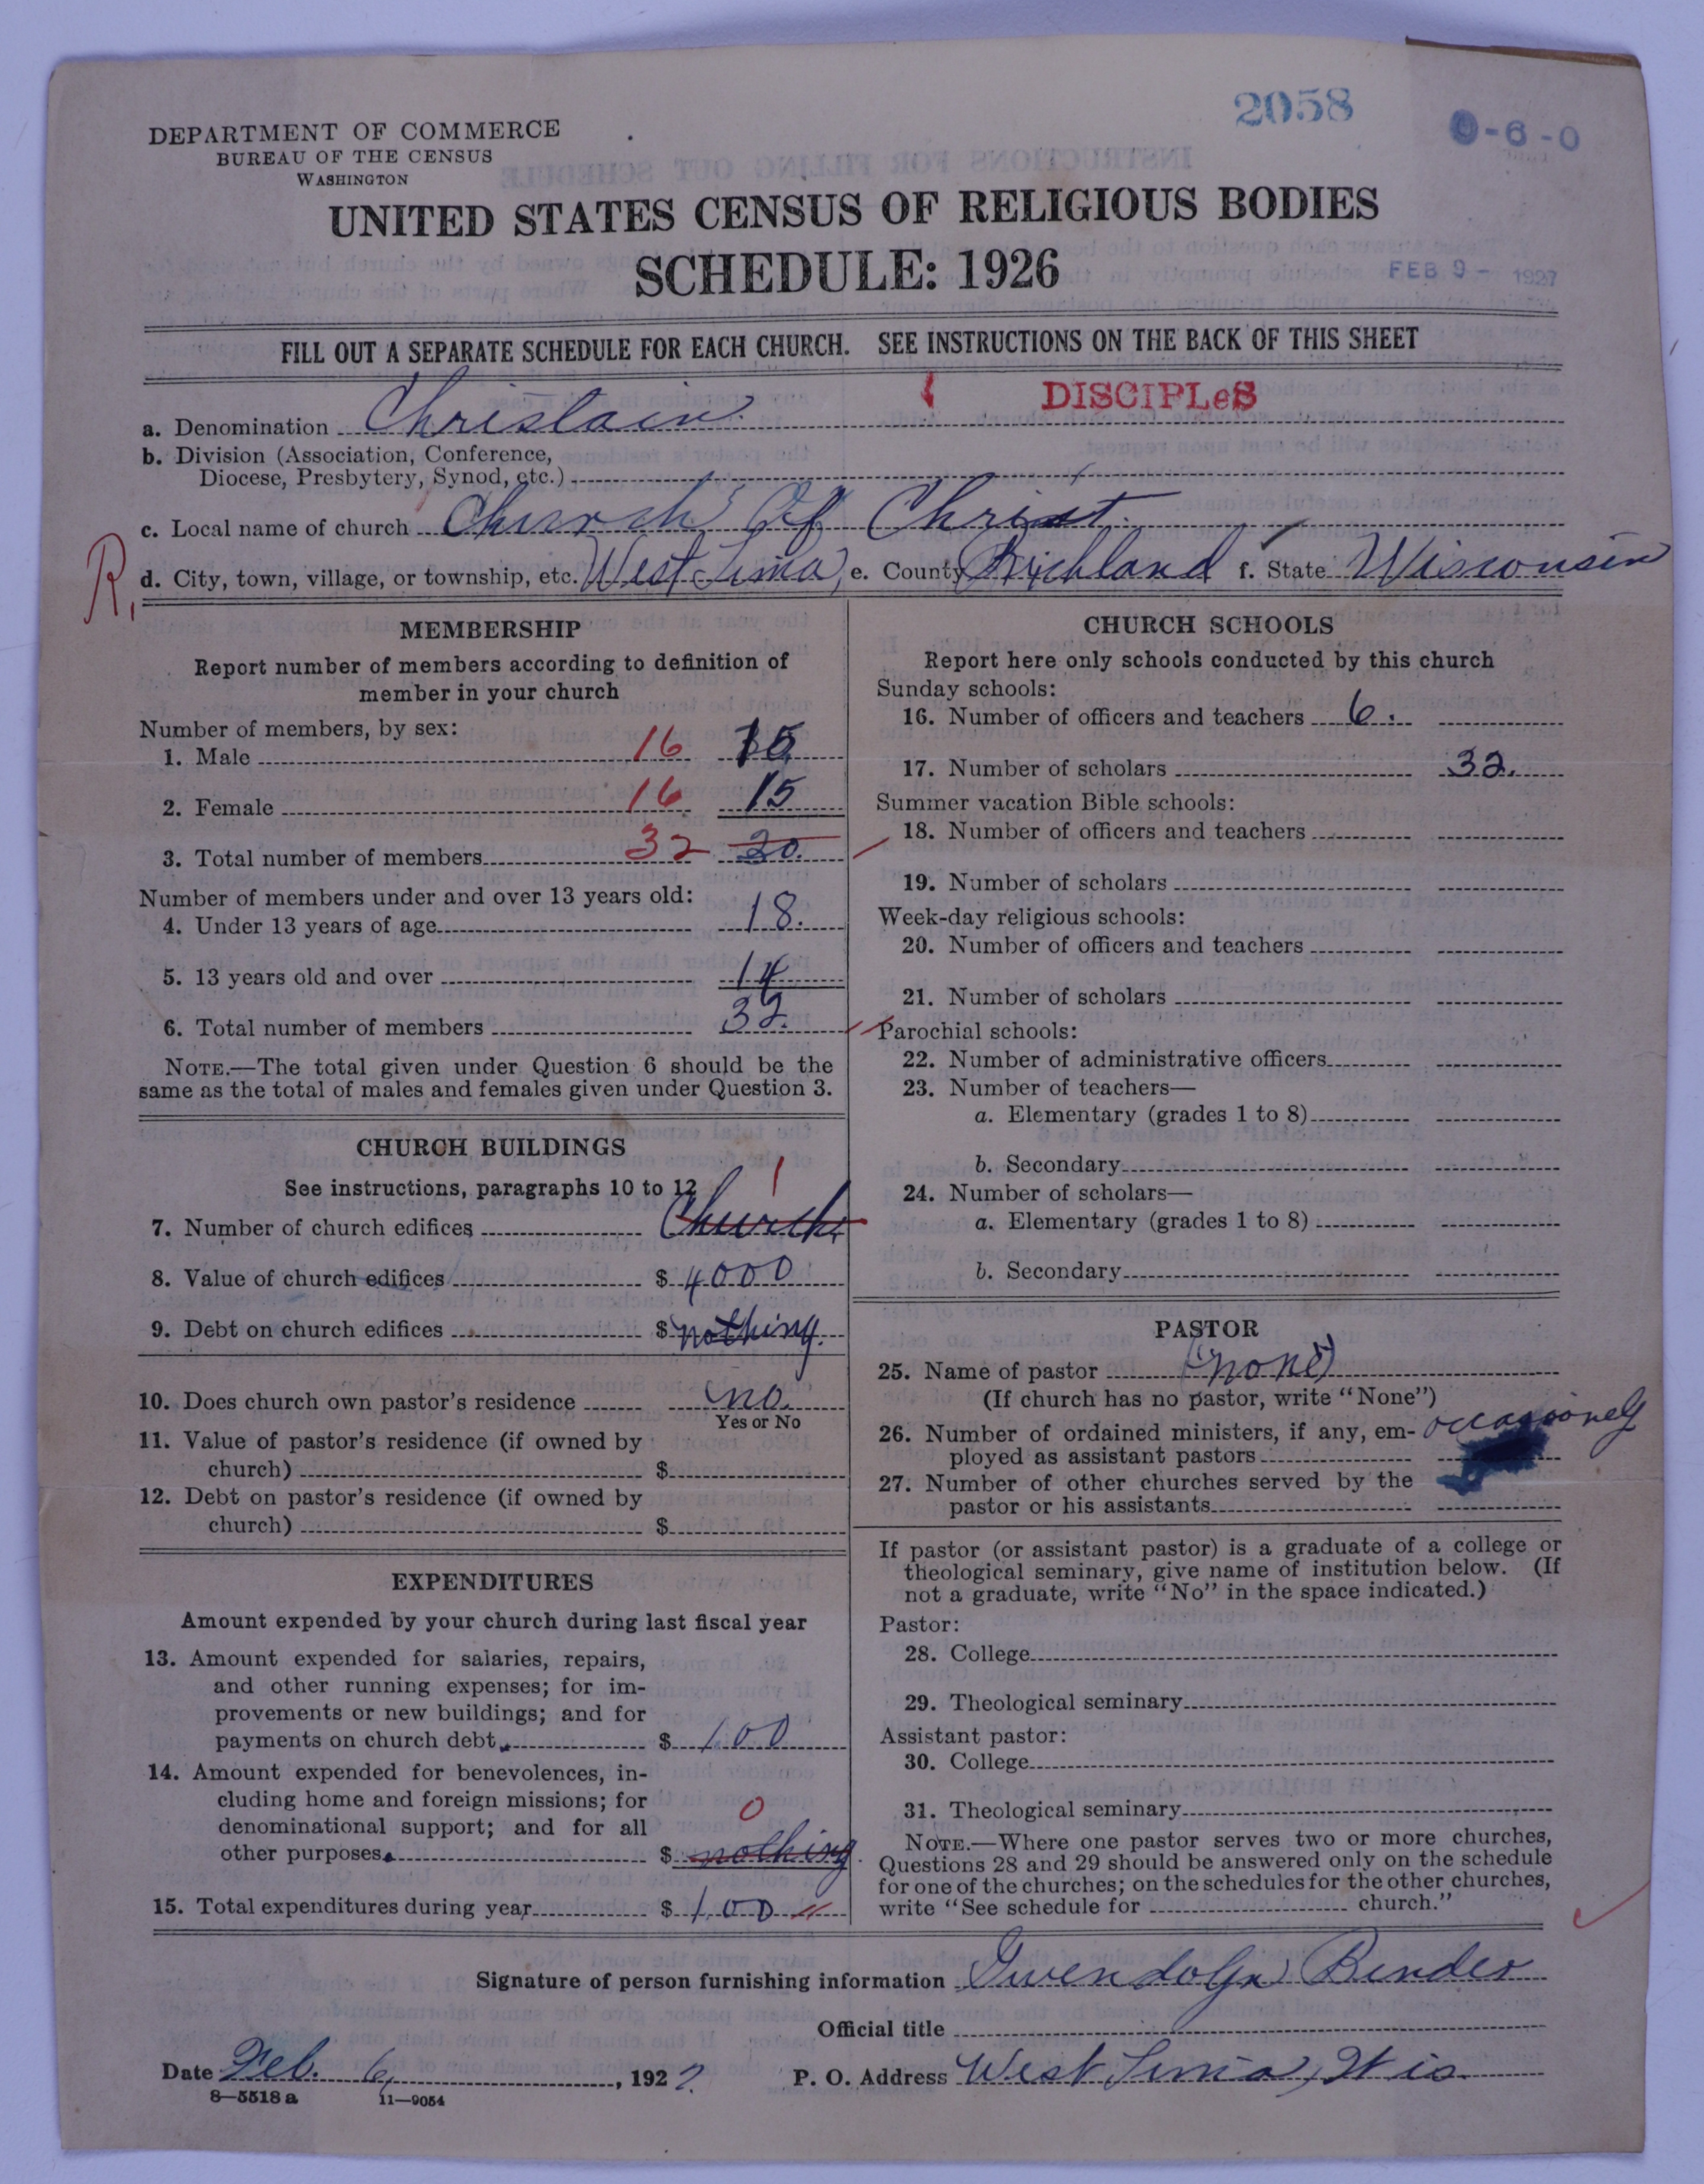 2058
0-6-0
DEPARTMENT OF COMMERCE
BUREAU OF THE CENSUS
WASHINGTON
UNITED STATES CENSUS OF RELIGIOUS BODIES
SCHEDULE: 1926
FEB 9 - 1927
FILL OUT A SEPARATE SCHEDULE FOR EACH CHURCH. SEE INSTRUCTIONS ON THE BACK OF THIS SHEET
DISCIPLeS
a. Denomination Christain
b. Division (Association, Conference,
Diocese, Presbytery, Synod, etc.)
c. Local name of church Church Of Christ
R. d. City, town, village, or township, etc. West Lima, e. County Richland f. State Wisconsin
MEMBERSHIP
Report number of members according to definition of
member in your church
Number of members, by sex:
1. Male 16 15
2. Female 16 15
3. Total number of members 32 30.
Number of members under and over 13 years old:
4. Under 13 years of age 18.
5. 13 years old and over 14
6. Total number of members 32.
NOTE.—The total given under Question 6 should be the
same as the total of males and females given under Question 3.
CHURCH BUILDINGS
See instructions, paragraphs 10 to 12
1
7. Number of church edifices Church
8. Value of church edifices $ 4000
9. Debt on church edifices $ nothing.
10. Does church own pastor's residence no.
Yes or No
11. Value of pastor's residence (if owned by
church) $
12. Debt on pastor's residence (if owned by
church) $
EXPENDITURES
Amount expended by your church during last fiscal year
13. Amount expended for salaries, repairs,
and other running expenses; for im-
provements or new buildings; and for
payments on church debt $ 100
14. Amount expended for benevolences, in-
cluding home and foreign missions; for
denominational support; and for all
0
other purposes $ nothing.
15. Total expenditures during year $ 100
CHURCH SCHOOLS
Report here only schools conducted by this church
Sunday schools:
16. Number of officers and teachers 6.
17. Number of scholars 32.
Summer vacation Bible schools:
18. Number of officers and teachers
19. Number of scholars
Week-day religious schools:
20. Number of officers and teachers
21. Number of scholars
Parochial schools:
22. Number of administrative officers
23. Number of teachers—
a. Elementary (grades 1 to 8)
b. Secondary
24. Number of scholars—
a. Elementary (grades 1 to 8)
b. Secondary
PASTOR
25. Name of pastor (none)
(If church has no pastor, write "None")
26. Number of ordained ministers, if any, em- occasionely
ployed as assistant pastors
27. Number of other churches served by the
pastor or his assistants
If pastor (or assistant pastor) is a graduate of a college or
theological seminary, give name of institution below. (If
not a graduate, write "No" in the space indicated.)
Pastor:
28. College
29. Theological seminary
Assistant pastor:
30. College
31. Theological seminary
NOTE.—Where one pastor serves two or more churches,
Questions 28 and 29 should be answered only on the schedule
for one of the churches; on the schedules for the other churches,
write "See schedule for church."
Signature of person furnishing information Gwendolyn Bender
Official title
Date Feb. 6, 1927. P. O. Address West Lima, Wis.
8—5518 a 11—9054